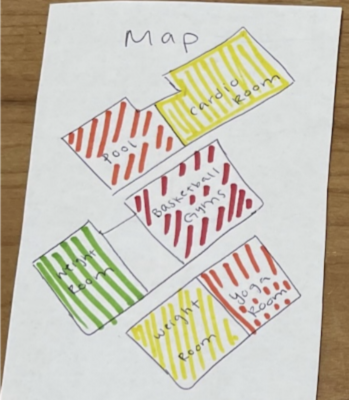 Map
Cardio
Room
Pool
Basketball
Gyms
Weight
Room
Yoga
Room
Weight
Room